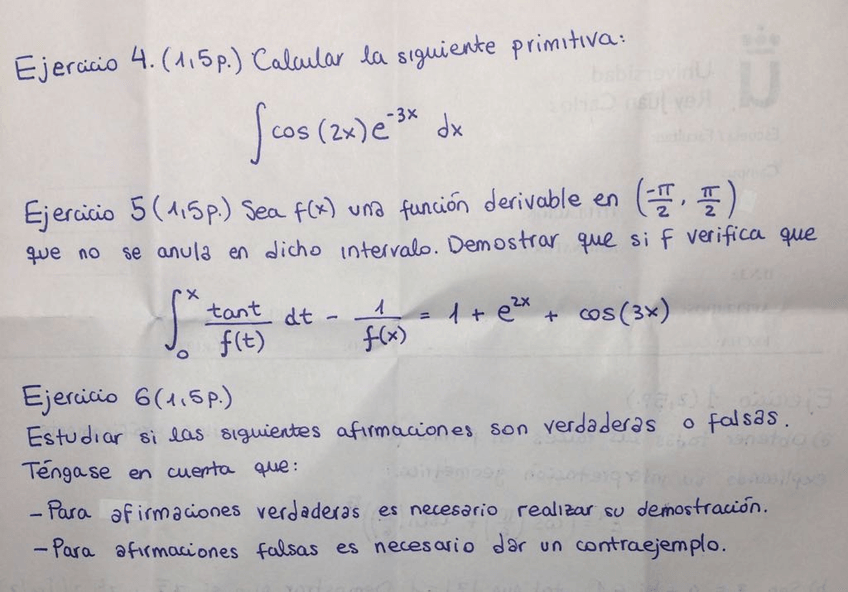 Ejercicio 4. (1,5p.) Calcular la siguiente primitiva:
∫ cos(2x) e^{-3x} dx
Ejercicio 5 (1,5p.) Sea f(x) una función derivable en (-π/2, π/2)
que no se anula en dicho intervalo. Demostrar que si f verifica que
∫_0^x tant/f(t) dt - 1/f(x) = 1 + e^{2x} + cos(3x)
Ejercicio 6 (1,5p.)
Estudiar si las siguientes afirmaciones son verdaderas o falsas.
Téngase en cuenta que:
- Para afirmaciones verdaderas es necesario realizar su demostración.
- Para afirmaciones falsas es necesario dar un contraejemplo.